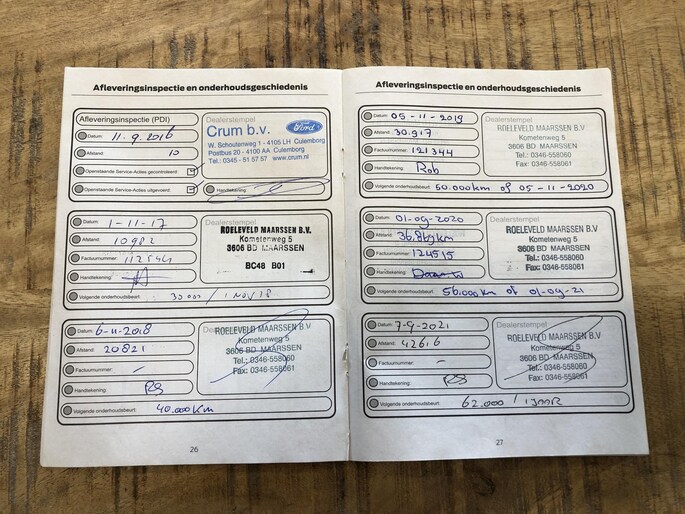 Afleveringsinspectie en onderhoudsgeschiedenis
Afleveringsinspectie (PDI)
Datum: 11-9-2016
Afstand: 10
Openstaande Service-Acties gecontroleerd
Openstaande Service-Acties uitgevoerd
Dealerstempel
Crum b.v.
Ford
W. Schoutenweg 1 - 4105 LH Culemborg
Postbus 20 - 4100 AA Culemborg
Tel.: 0345 - 51 57 57 www.crum.nl
Handtekening:
Datum: 1-11-17
Afstand: 10982
Factuurnummer: 112544
Handtekening:
Volgende onderhoudsbeurt: 30.000 / 1 NOV 18
Dealerstempel
ROELEVELD MAARSSEN B.V.
Kometenweg 5
3606 BD MAARSSEN
BC48 B01
Datum: 6-11-2018
Afstand: 20821
Factuurnummer: -
Handtekening: RS
Volgende onderhoudsbeurt: 40.000 Km
Dealerstempel
ROELEVELD MAARSSEN B.V
Kometenweg 5
3606 BD MAARSSEN
Tel.: 0346-558060
Fax: 0346-558061
26
Afleveringsinspectie en onderhoudsgeschiedenis
Datum: 05-11-2019
Afstand: 30.917
Factuurnummer: 121344
Handtekening: Rob
Volgende onderhoudsbeurt: 50.000km of 05-11-2020
Dealerstempel
ROELEVELD MAARSSEN B.V.
Kometenweg 5
3606 BD MAARSSEN
Tel.: 0346-558060
Fax: 0346-558061
Datum: 01-09-2020
Afstand: 36.869km
Factuurnummer: 124515
Handtekening:
Volgende onderhoudsbeurt: 56.000km of 01-09-21
Dealerstempel
ROELEVELD MAARSSEN B.V.
Kometenweg 5
3606 BD MAARSSEN
Tel.: 0346-558060
Fax: 0346-558061
Datum: 7-9-2021
Afstand: 42616
Factuurnummer: -
Handtekening: RS
Volgende onderhoudsbeurt: 62.000 / 1 JAAR
Dealerstempel
ROELEVELD MAARSSEN B.V
Kometenweg 5
3606 BD MAARSSEN
Tel.: 0346-558060
Fax: 0346-558061
27